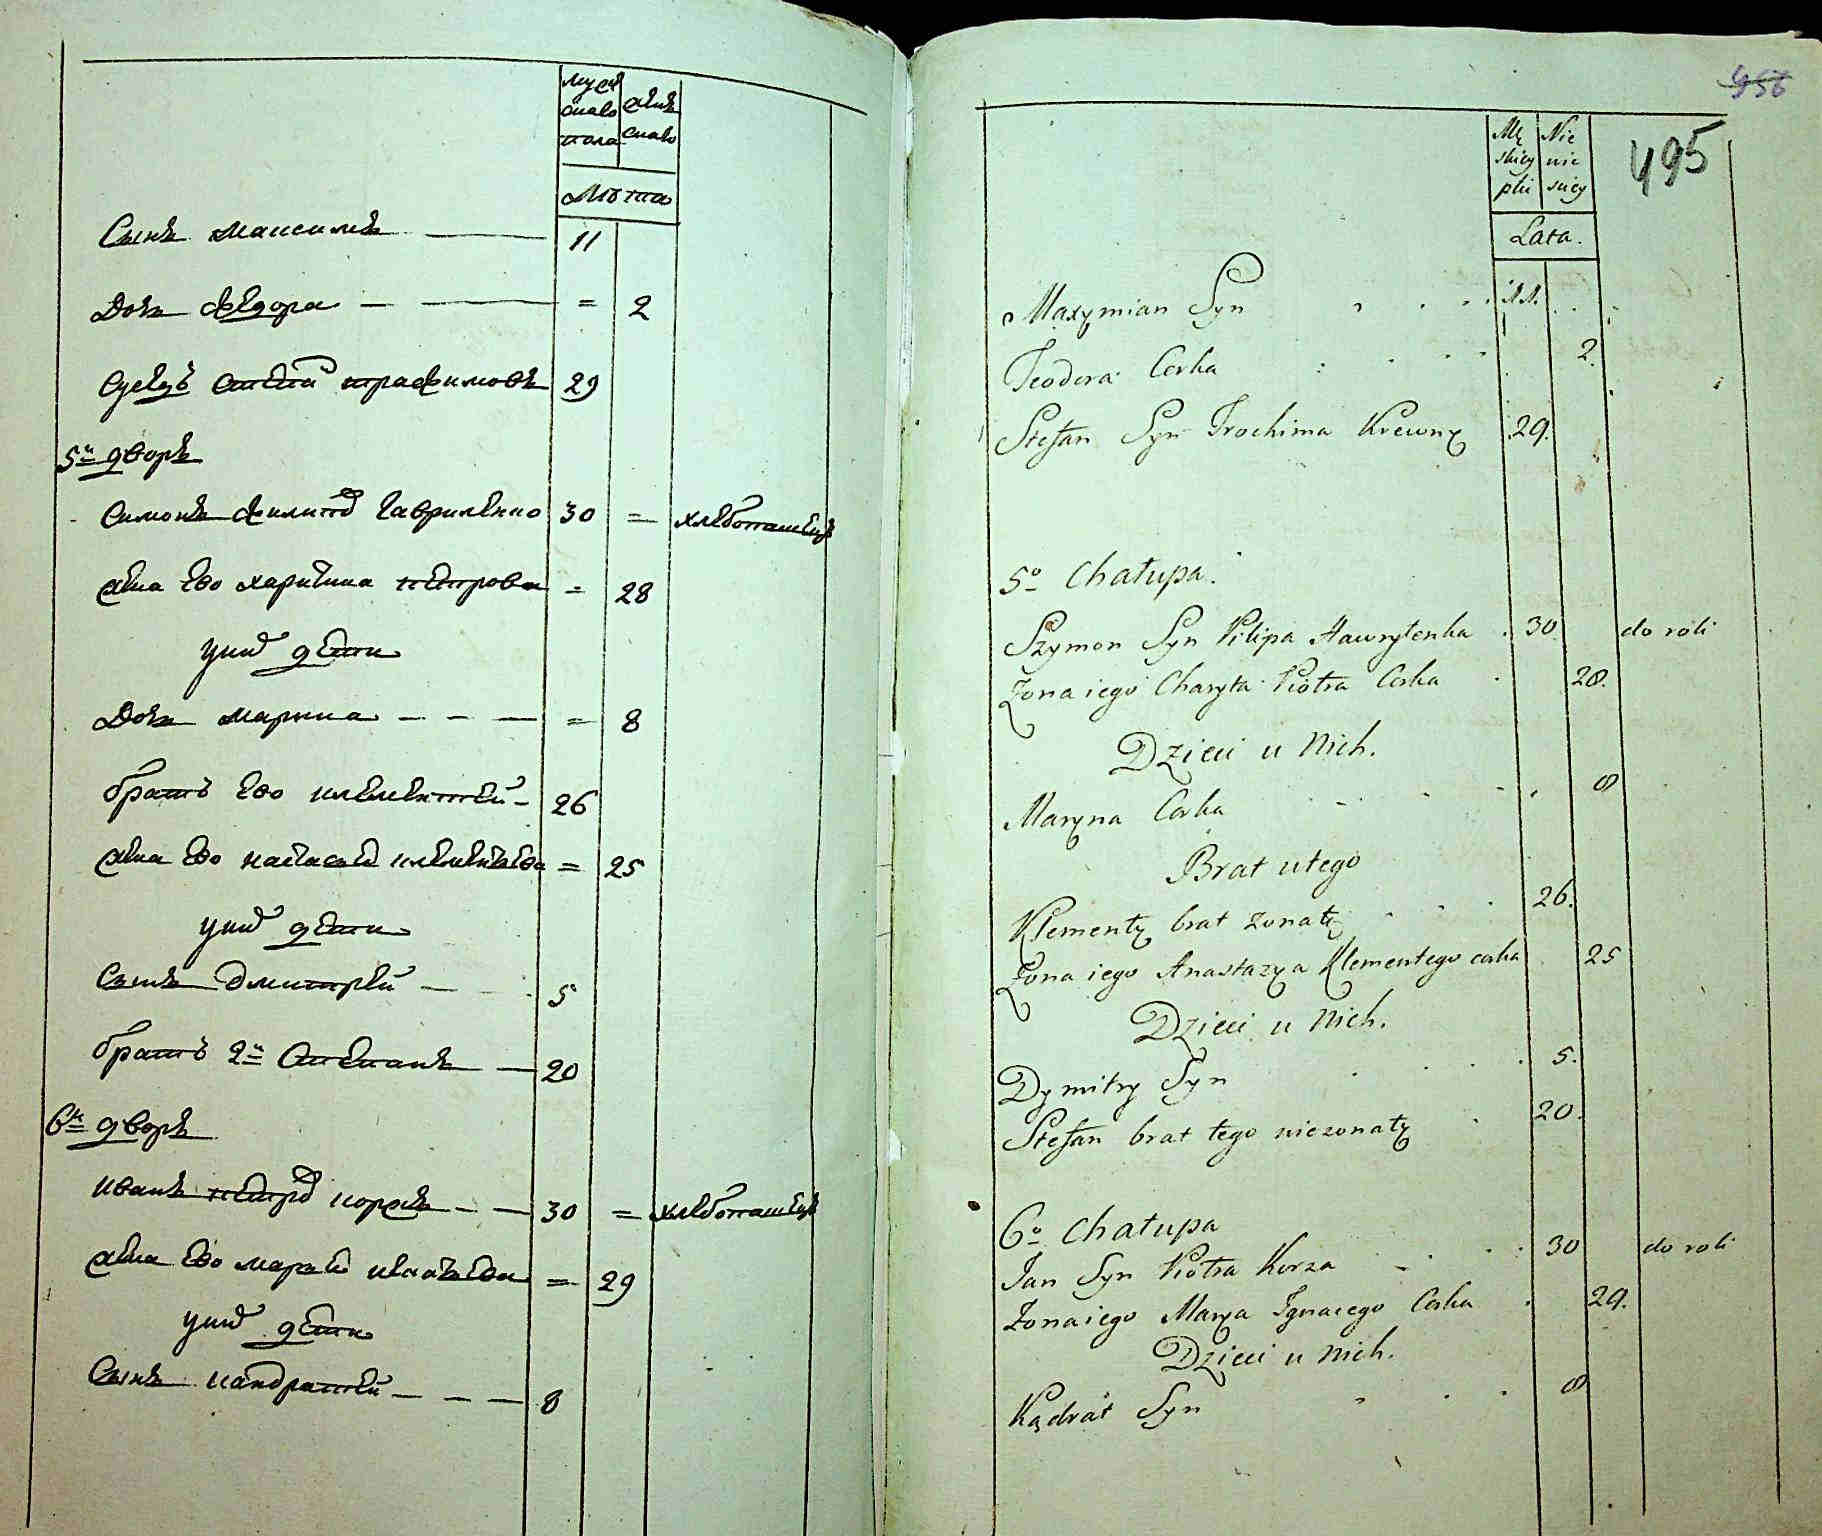 муж
скаго
пола
женк
скаго
Лѣта
Сынъ максимъ 11
Дочь ѳедора = 2
сусѣдъ стефа трафимовъ 29
5й дворъ
Симонъ филипо гавриленко 30 = хлѣбопашецъ
жена его харитина петрова = 28
у них дети
Дочь марина = 8
братъ его клементей 26
жена его настася клементьева = 25
у них дети
Сынъ дмитрей 5
братъ 2й Степанъ 20
6й дворъ
иванъ петро коржъ 30 = хлѣбопашецъ
жена его марья игнатьева = 29
у них дети
Сынъ кандратей 8
456
495
Mę
skiey
płci
Nie
wie
sciey
Lata.
Maxymian Syn 11.
Teodora Corka 2.
Stefan Syn Trochima Krewny 29.
5o Chałupa.
Szymon Syn Filipa Hawryłenka 30 do roli
Żona iego Charyta Piotra Corka 28.
Dzieci u Nich.
Maryna Corka 8
Brat u tego
Klementy brat żonaty 26.
Żona iego Anastazya Klementego corka 25
Dzieci u Nich.
Dymitry Syn 5.
Stefan brat tego nieżonaty 20.
6o Chałupa
Jan Syn Piotra Korza 30 do roli
Żona iego Marya Ignacego Corka 29.
Dzieci u Nich.
Kądrat Syn 8